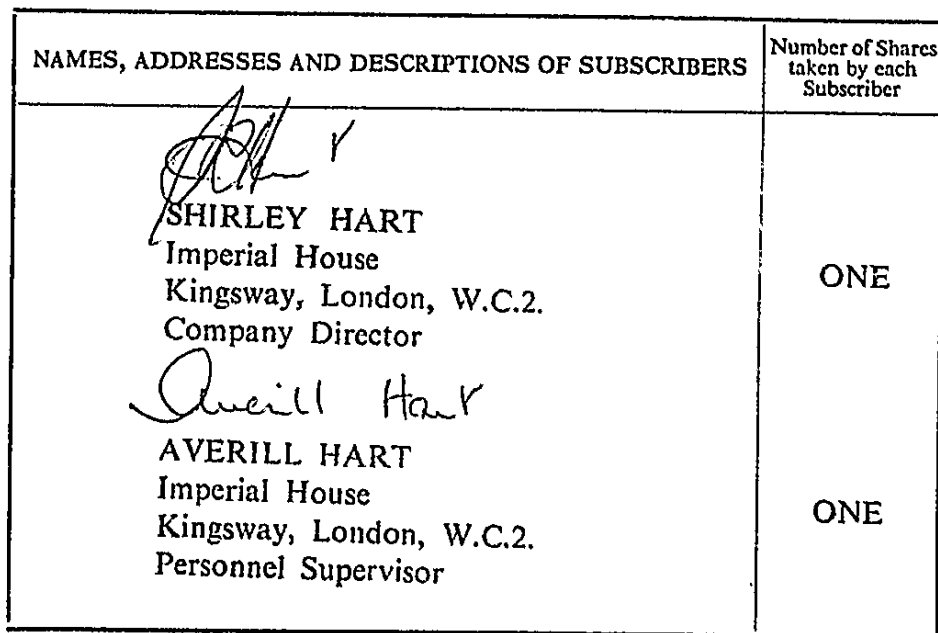 NAMES, ADDRESSES AND DESCRIPTIONS OF SUBSCRIBERS
Number of Shares
taken by each
Subscriber
SHIRLEY HART
Imperial House
Kingsway, London, W.C.2.
Company Director
ONE
Averill Hart
AVERILL HART
Imperial House
Kingsway, London, W.C.2.
Personnel Supervisor
ONE